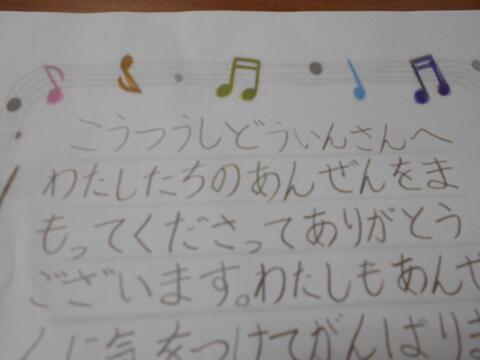 こうつうしどういんさんへ
わたしたちのあんぜんをま
もってくださってありがとう
ございます。わたしもあんぜ
んに気をつけてがんばりま